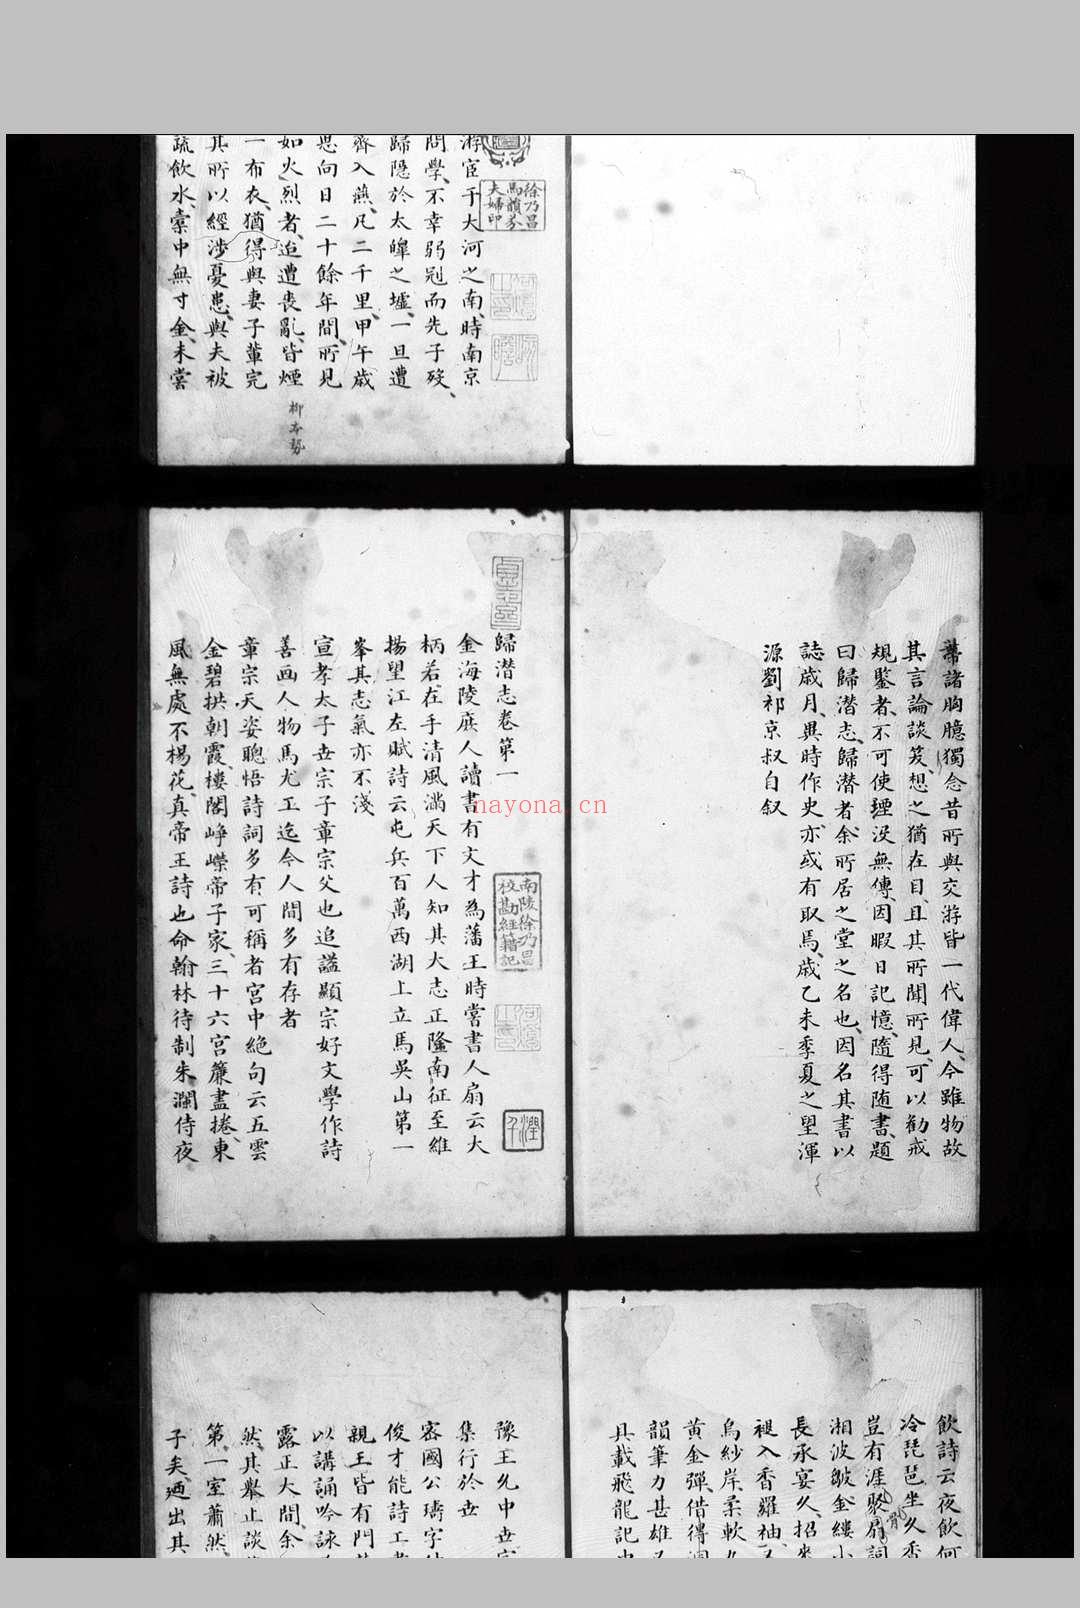 游宦于大河之南時南京
問學不幸弱冠而先子歿
歸隱於太皥之墟一旦遭
齊入燕凡二千里甲午歲
思向日二十餘年間所見
如火烈者迨遭喪亂皆煙
一布衣猶得與妻子輩完
其所以經涉憂患與夫被
疏飲水橐中無寸金未嘗
柳本勢
徐乃昌
馬韻芬
夫婦印
蓄諸胸臆獨念昔所與交游皆一代偉人今雖物故
其言論談笑想之猶在目且其所聞所見可以勸戒
規鑒者不可使堙没無傳因暇日記憶隨得随書題
曰歸潛志歸潜者余所居之堂之名也因名其書以
誌歲月異時作史亦或有取焉歲乙未季夏之望渾
源劉祁京叔自叙
歸潜志卷第一
金海陵庶人讀書有文才為藩王時嘗書人扇云大
柄若在手清風滿天下人知其大志正隆南征至維
揚望江左賦詩云屯兵百萬西湖上立馬吳山第一
峯其志氣亦不淺
宣孝太子世宗子章宗父也追謚顯宗好文學作詩
善画人物馬尤工迄今人間多有存者
章宗天姿聰悟詩詞多有可稱者宮中絶句云五雲
金碧拱朝霞樓閣崢嶸帝子家三十六宮簾盡捲東
風無處不楊花真帝王詩也命翰林待制朱瀾侍夜
南陵徐乃昌
校勘經籍記
nayona.cn
飲詩云夜飲何
冷琵琶坐久香
豈有涯聚扇詞
骨
湘波皺金縷小
長承宴久招來
褪入香羅袖又
烏紗岸柔軟九
黄金彈借得洞
韻筆力甚雄又
具載飛龍記中
豫王允中世宗
集行於世
密國公璹字仲
俊才能詩工書
親王皆有門
以講誦吟詠
露正大間余
然其舉止談
第一室蕭然
子矣廼出其